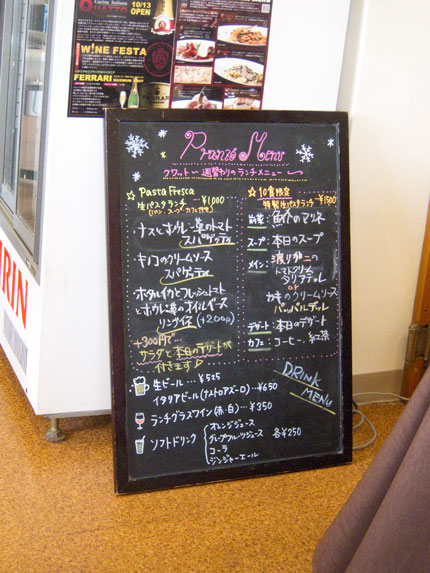 10/13
OPEN
WINE FESTA
FERRARI
KIRIN
Pranzo Menu
クワットロ 週替わりのランチメニュー
☆ Pasta Fresca
生パスタランチ ¥1000
(パン、スープ、カフェ付き)
ナスとホウレン草のトマト
スパゲッティ
キノコのクリームソース
スパゲティ
ホタルイカとフレッシュトマト
とホウレン草のオイルソース
リングイネ (+200円)
+300円で…
サラダと本日のデザートが
付きます♪
☆10食限定
特製生パスタランチ ¥1500
前菜: 魚介のマリネ
スープ: 本日のスープ
メイン: 渡りガニの
トマトクリーム
タリアテッレ
or
カキのクリームソース
パッパルデッレ
デザート: 本日のデザート
カフェ: コーヒー、紅茶
DRINK
MENU
生ビール…¥525
イタリアビール(ナストロアズーロ)…¥650
ランチグラスワイン(赤・白)…¥350
ソフトドリンク
オレンジジュース
グレープフルーツジュース
コーラ
ジンジャーエール
各¥250